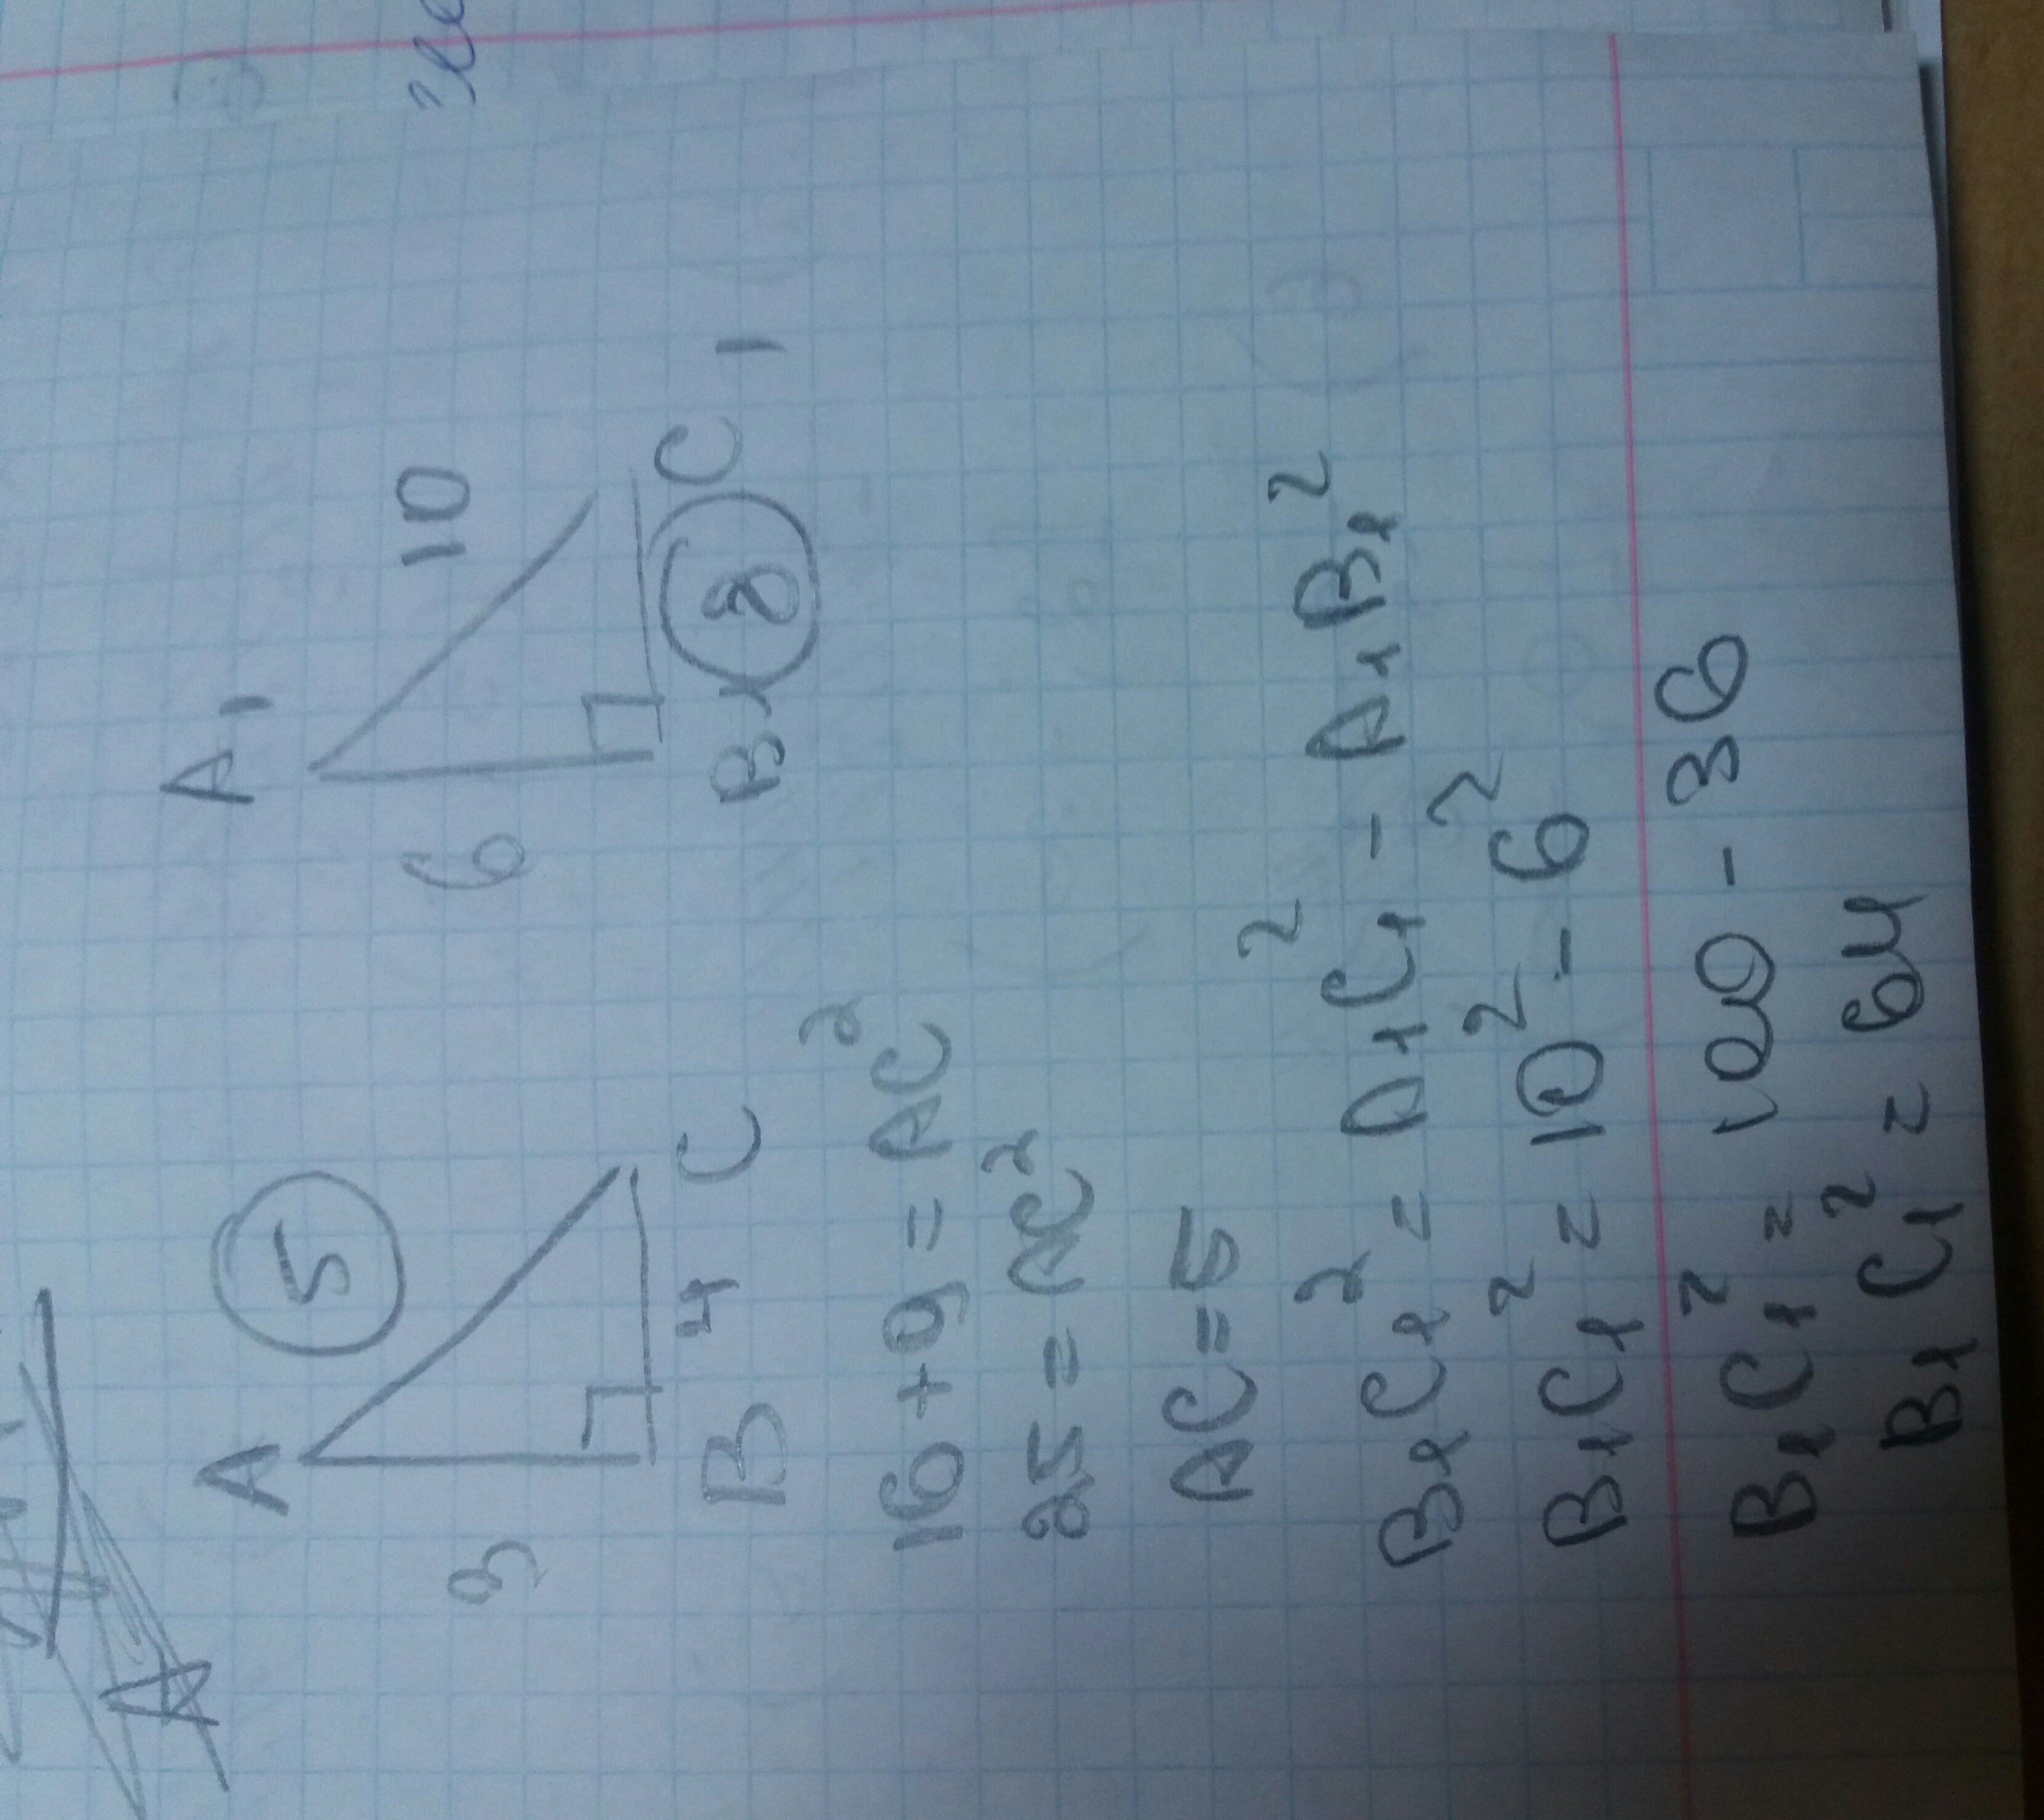 A
A
A1
5
10
3
6
B 4 C
B1 8 C1
16 + 9 = AC²
25 = AC²
AC = 5
B₁C₁² = A₁C₁² - A₁B₁²
B₁C₁² = 10² - 6²
B₁C₁² = 100 - 36
B₁C₁² = 64